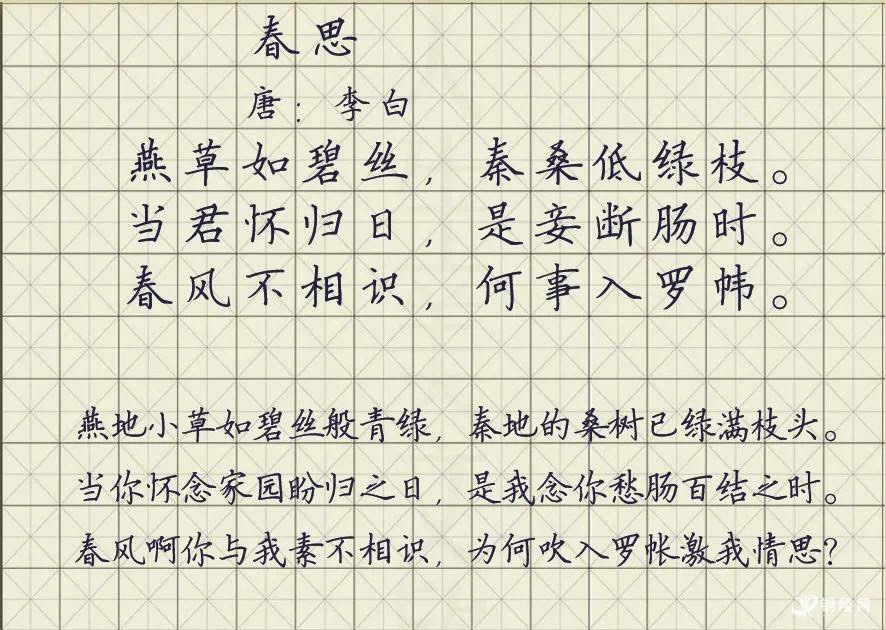 春思
唐：李白
燕草如碧丝，秦桑低绿枝。
当君怀归日，是妾断肠时。
春风不相识，何事入罗帏。
燕地小草如碧丝般青绿，秦地的桑树已绿满枝头。
当你怀念家园盼归之日，是我念你愁肠百结之时。
春风啊你与我素不相识，为何吹入罗帐激我情思？
铜陵网